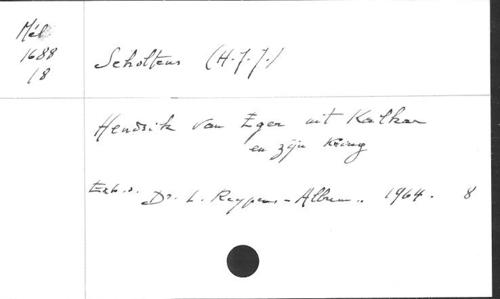 Mél
1688
18
Scholtens (H.J.J.)
Hendrik van Eger uit Kalkar
en zijn Kring
Extr. Dr. L. Reypens-Album.. 1964. 8